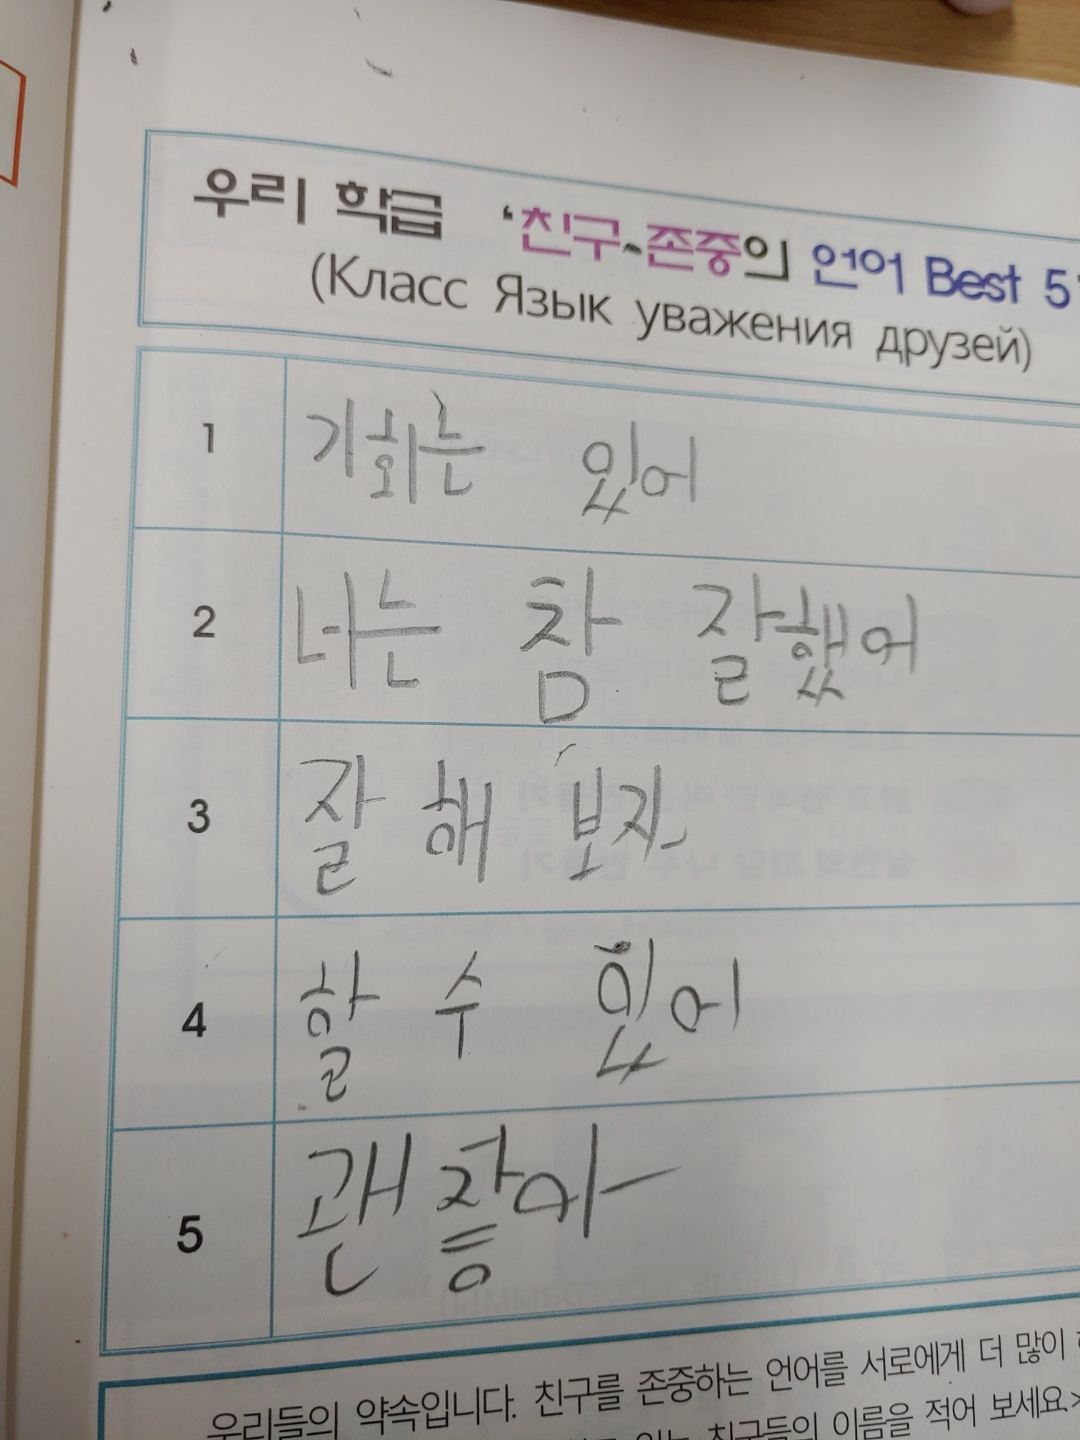 우리 학급 '친구-존중의 언어 Best 5'
(Класс Язык уважения друзей)
1 기회는 있어
2 너는 참 잘했어
3 잘 해 보자
4 할 수 있어
5 괜찮아
우리들의 약속입니다. 친구를 존중하는 언어를 서로에게 더 많이
있는 친구들의 이름을 적어 보세요.>